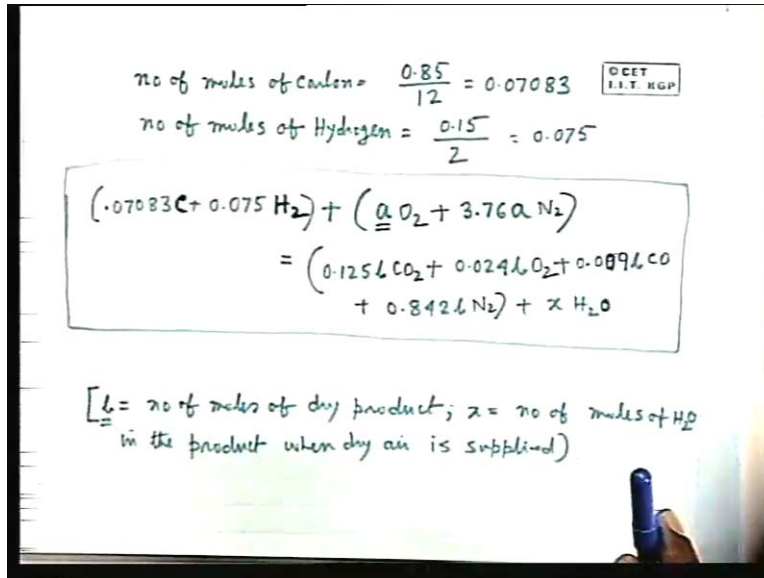 no of moles of Carbon = 0.85 / 12 = 0.07083
© CET
I.I.T. KGP
no of moles of Hydrogen = 0.15 / 2 = 0.075
(.07083C + 0.075 H₂) + (a O₂ + 3.76a N₂)
= (0.125b CO₂ + 0.024b O₂ + 0.009b CO
+ 0.842b N₂) + x H₂O
[b = no of moles of dry product; x = no of moles of H₂O
in the product when dry air is supplied)